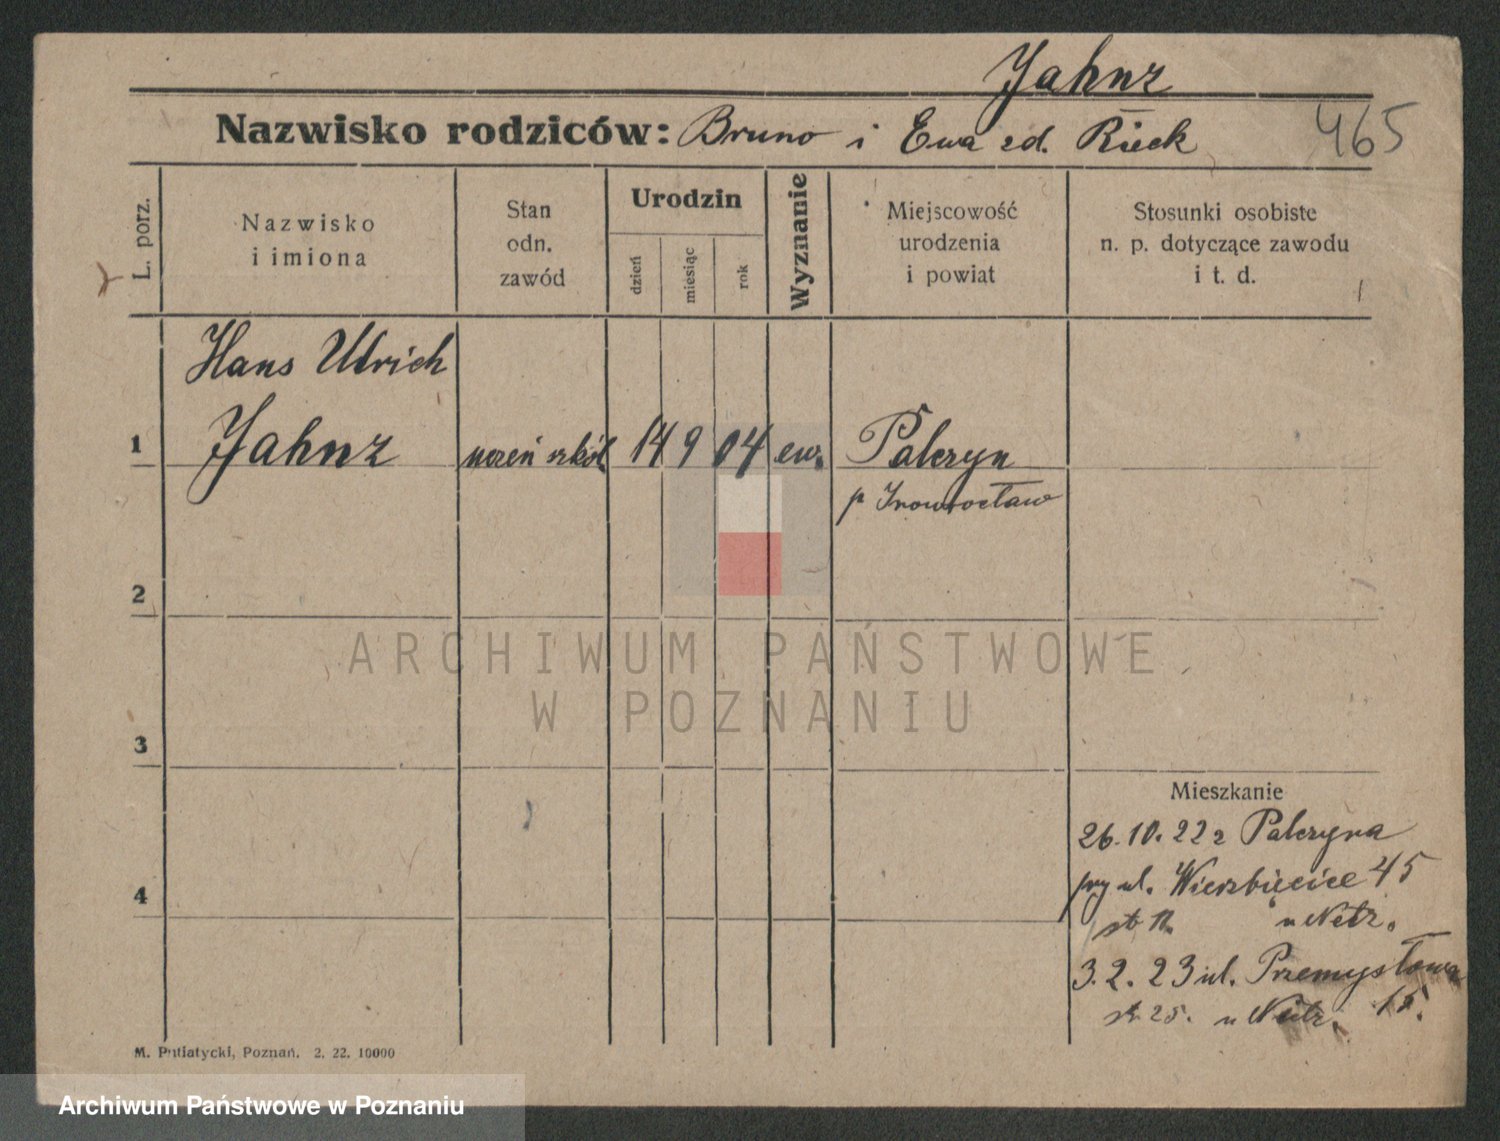 Jahnz
Nazwisko rodziców: Bruno i Ewa zd. Rieck
465
L. porz.
Nazwisko
i imiona
Stan
odn.
zawód
Urodzin
dzień
miesiąc
rok
Wyznanie
Miejscowość
urodzenia
i powiat
Stosunki osobiste
n. p. dotyczące zawodu
i t. d.
1
Hans Ulrich
Jahnz
uczeń szkół
14 9 04
ew.
Palczyn
p Inowrocław
2
3
4
Mieszkanie
26.10.22 z Palczyna
przy ul. Wierzbięcice 45
u Netz.
3.2.23 ul. Przemysłowa
15.
25. u Netz.
M. Putiatycki, Poznań. 2. 22. 10000
ARCHIWUM PAŃSTWOWE
W POZNANIU
Archiwum Państwowe w Poznaniu